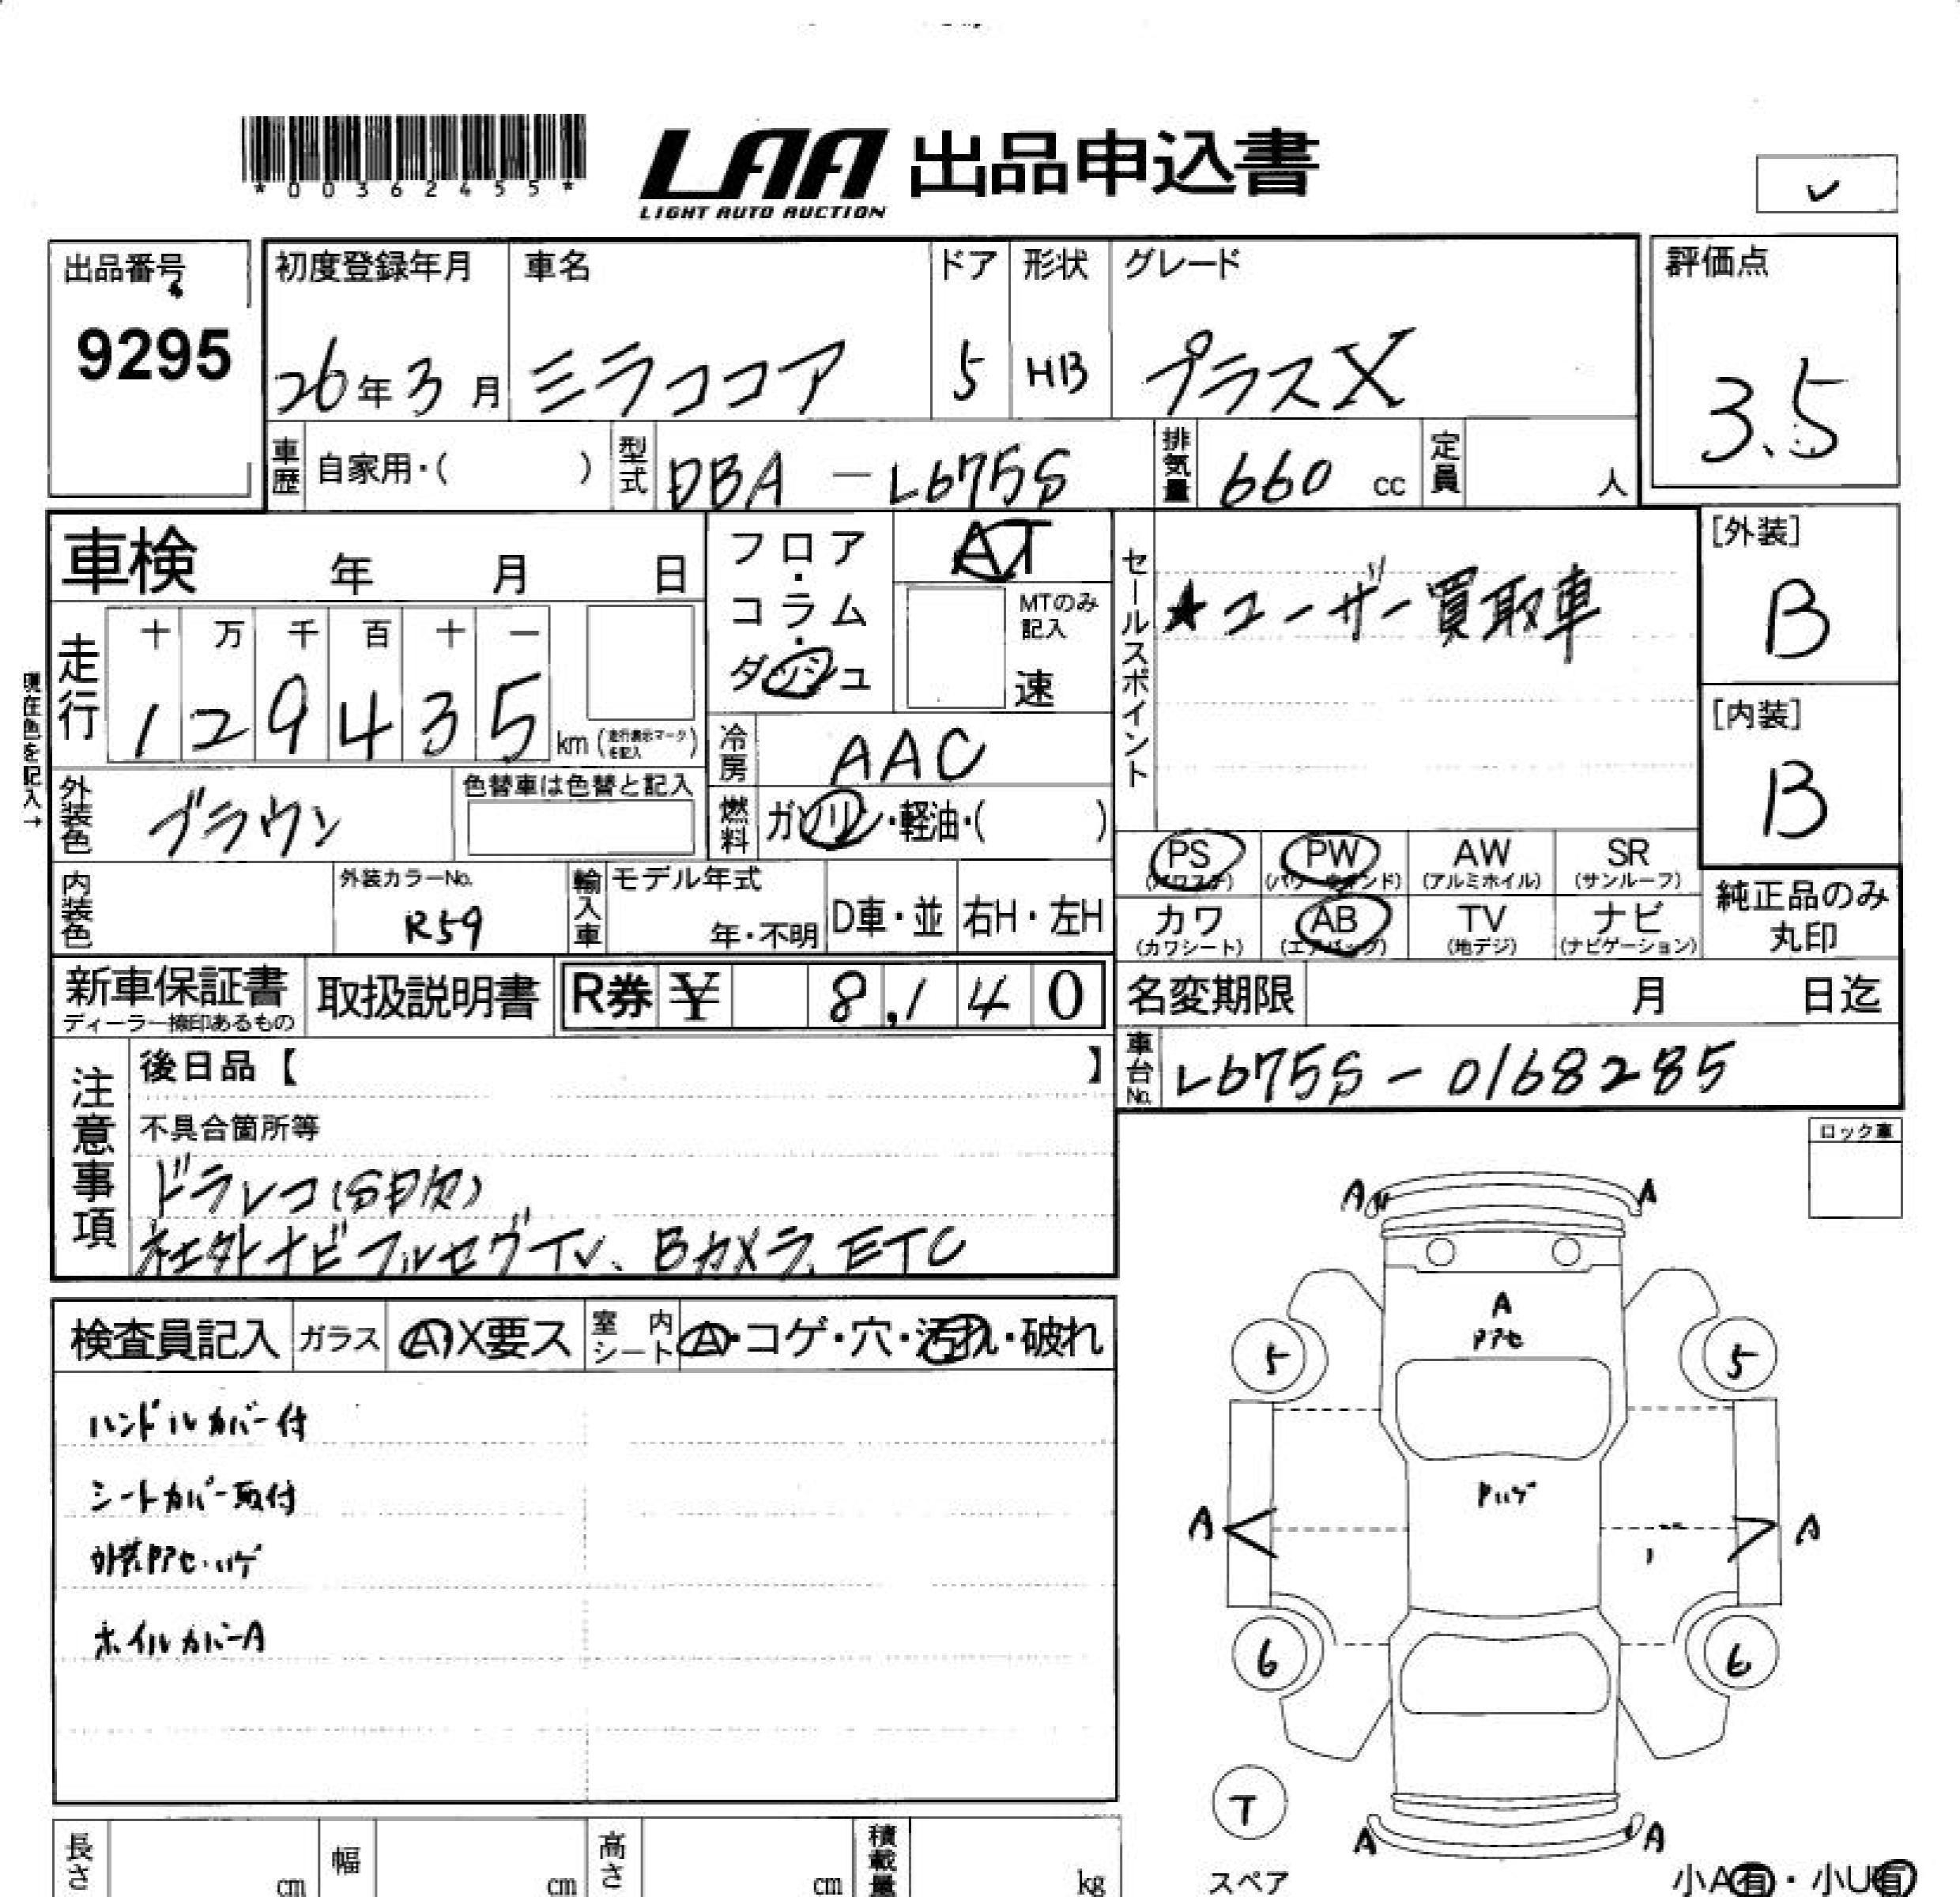 *00362455*
LAA 出品申込書
LIGHT AUTO AUCTION
✓
出品番号
9295
初度登録年月
26年3月
車名
ミラココア
ドア
5
形状
HB
グレード
プラスX
評価点
3.5
車歴 自家用・( )
型式 DBA - L675S
排気量 660 cc
定員 人
車検 年 月 日
フロア・コラム・ダッシュ
AT
MTのみ記入
速
走行
十 万 千 百 十 一
1 2 9 4 3 5 km (走行表示マークを記入)
現在色を記入→
冷房 AAC
燃料 ガソリン・軽油・( )
外装色 ブラウン
色替車は色替と記入
内装色
外装カラーNo.
R59
輸入車 モデル年式
年・不明
D車・並
右H・左H
セールスポイント
★ユーザー買取車
[外装]
B
[内装]
B
PS (パワステ)
PW (パワーウインド)
AW (アルミホイル)
SR (サンルーフ)
カワ (カワシート)
AB (エアバッグ)
TV (地デジ)
ナビ (ナビゲーション)
純正品のみ丸印
新車保証書
ディーラー捺印あるもの
取扱説明書
R券 ¥ 8,140
名変期限 月 日迄
車台No. L675S-0168285
注意事項
後日品【 】
不具合箇所等
ドラレコ(SD欠)
社外ナビフルセグTV、Bカメラ、ETC
ロック車
検査員記入
ガラス A X要ス
室内シート A・コゲ・穴・汚れ・破れ
ハンドルカバー付
シートカバー取付
外装Pアセ・ハゲ
ホイルカバーA
A A
A
Pアセ
5 5
Pハゲ
A A
6 6
T
スペア
A A
小A有・小U有
長さ cm
幅 cm
高さ cm
積載量 kg